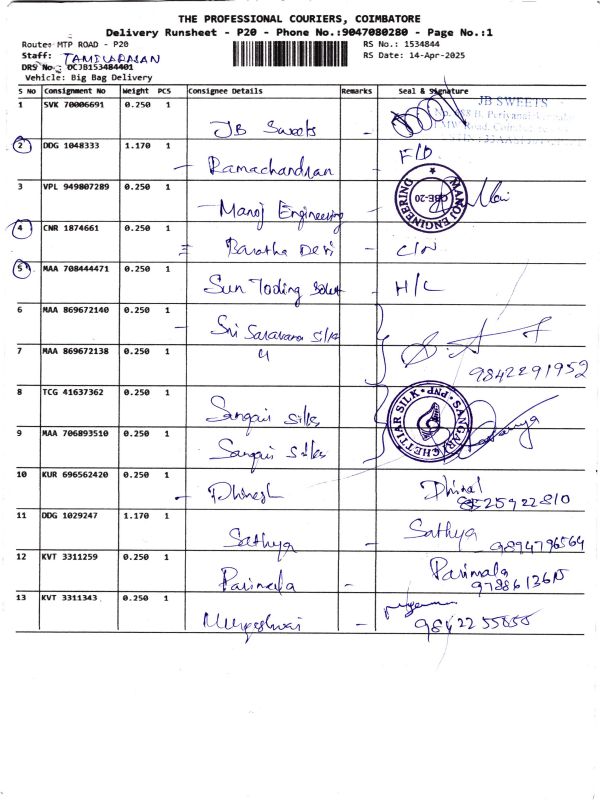 THE PROFESSIONAL COURIERS, COIMBATORE
Delivery Runsheet - P20 - Phone No.:9047080280 - Page No.:1
Route: MTP ROAD - P20 RS No.: 1534844
Staff: TAMILARASAN RS Date: 14-Apr-2025
DRS No.: OCJB153484401
Vehicle: Big Bag Delivery
S No Consignment No Weight PCS Consignee Details Remarks Seal & Signature
1 SVK 70006691 0.250 1 JB Sweets - JB SWEETS
2 DDG 1048333 1.170 1 - Ramachandran - F/D
3 VPL 949807289 0.250 1 - Manoj Engineering MANOJ ENGINEERING CBE-20
4 CNR 1874661 0.250 1 = Baratha Devi - C/N
5 MAA 708444471 0.250 1 Sun Toding Solut - H/C
6 MAA 869672140 0.250 1 - Sri Saravana Silk
7 MAA 869672138 0.250 1 "
9842291952
8 TCG 41637362 0.250 1 Sangari Silks SANGARI CHETTIAR SILK PNP
9 MAA 706893510 0.250 1 Sangari Silks
10 KUR 696562420 0.250 1 - Dhinesh Dhinal
8525922810
11 DDG 1029247 1.170 1 Sathya - Sathya
9894796564
12 KVT 3311259 0.250 1 Parimala - Parimala
13 KVT 3311343 0.250 1 Murgeshwari -